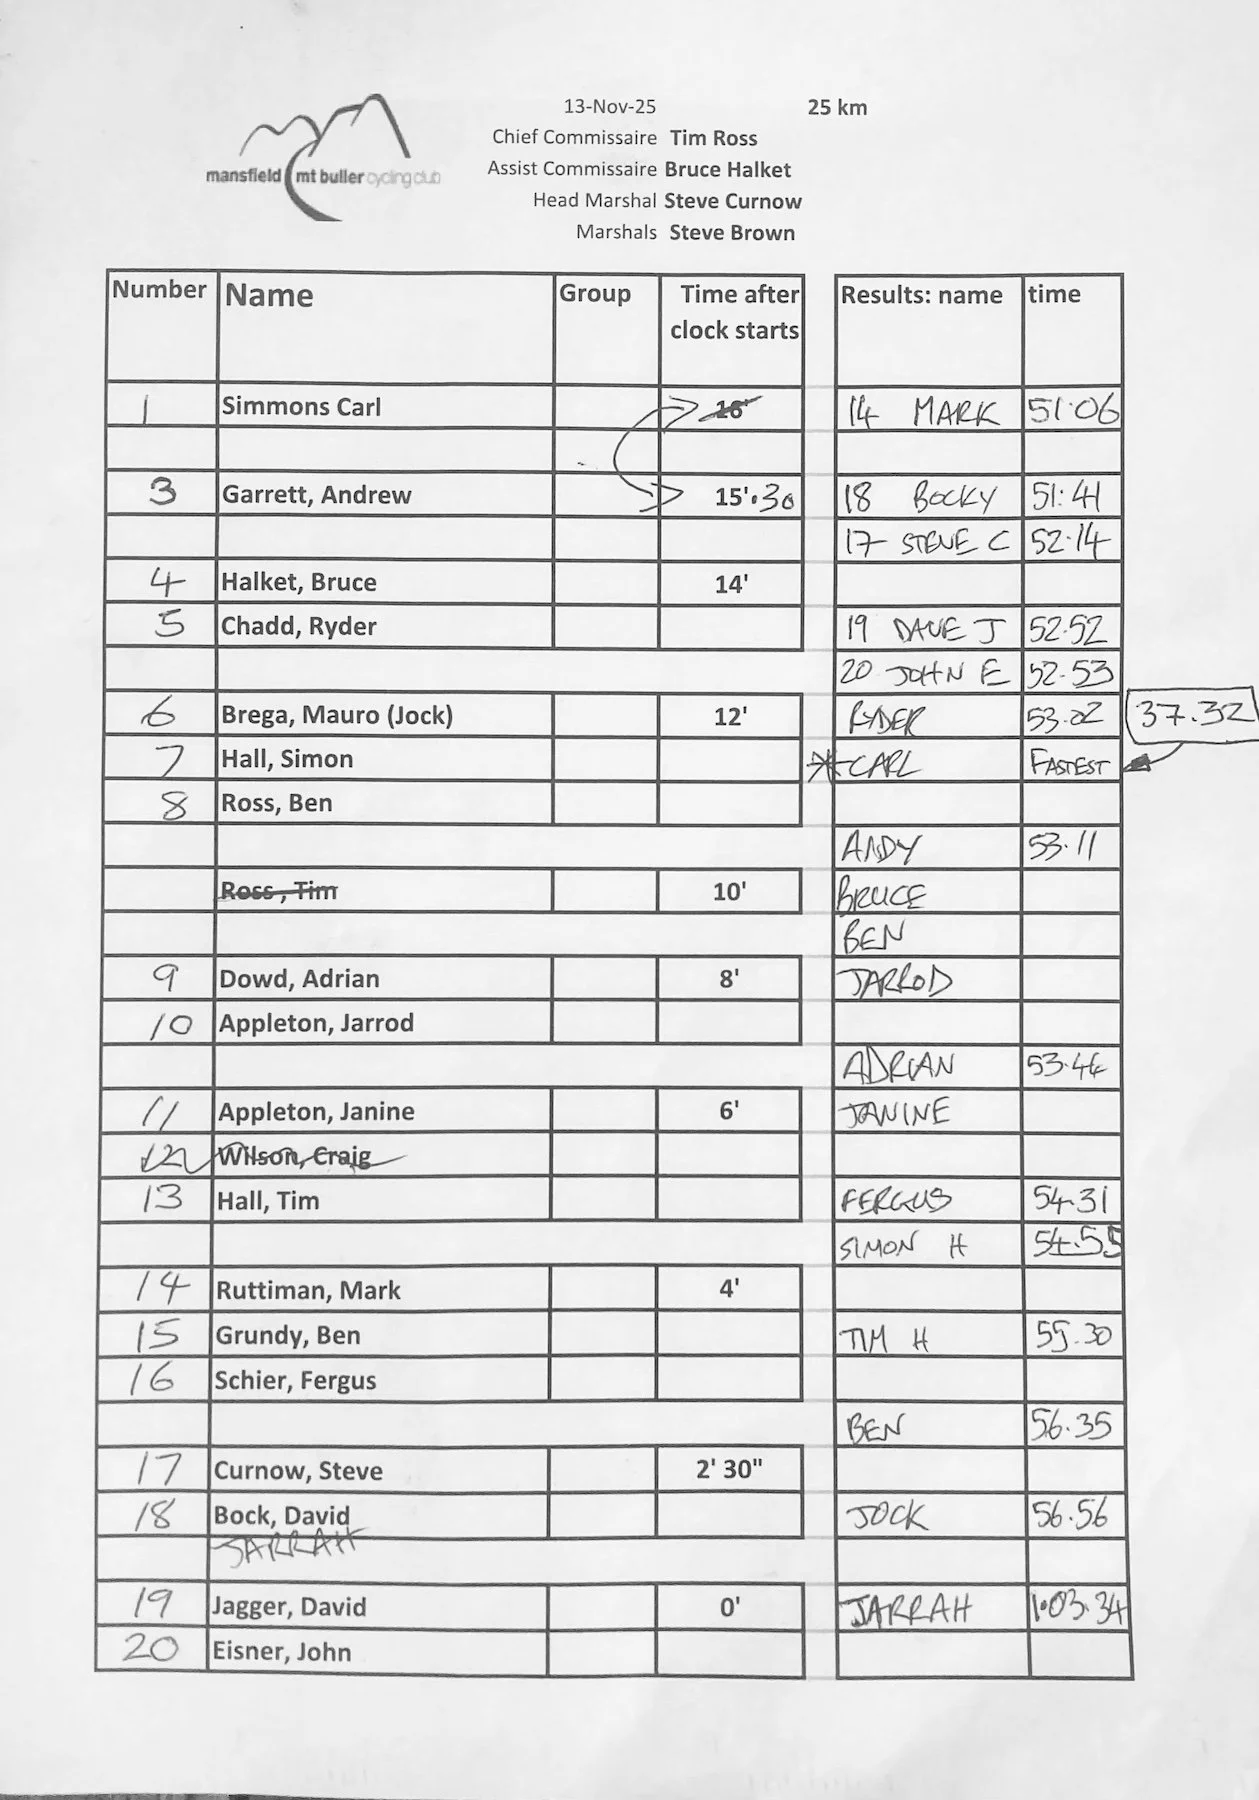 13-Nov-25 25 km
Chief Commissaire Tim Ross
Assist Commissaire Bruce Halket
mansfield mt buller cycling club
Head Marshal Steve Curnow
Marshals Steve Brown
Number Name Group Time after clock starts Results: name time
1 Simmons Carl 16' 14 MARK 51.06
3 Garrett, Andrew 15'.30 18 BOCKY 51:41
17 STEVE C 52.14
4 Halket, Bruce 14'
5 Chadd, Ryder 19 DAVE J 52.52
20 JOHN E 52.53
6 Brega, Mauro (Jock) 12' RYDER 53.02 37.32
7 Hall, Simon * CARL FASTEST
8 Ross, Ben
ANDY 53.11
Ross, Tim 10' BRUCE
BEN
9 Dowd, Adrian 8' JARROD
10 Appleton, Jarrod
ADRIAN 53.44
11 Appleton, Janine 6' JANINE
12 Wilson, Craig
13 Hall, Tim FERGUS 54.31
SIMON H 54.55
14 Ruttiman, Mark 4'
15 Grundy, Ben TIM H 55.30
16 Schier, Fergus
BEN 56.35
17 Curnow, Steve 2' 30"
18 Bock, David JOCK 56.56
JARRAH
19 Jagger, David 0' JARRAH 1.03.34
20 Eisner, John